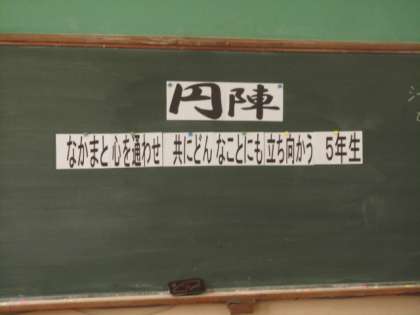 円陣
なかまと心を通わせ 共にどんなことにも立ち向かう 5年生